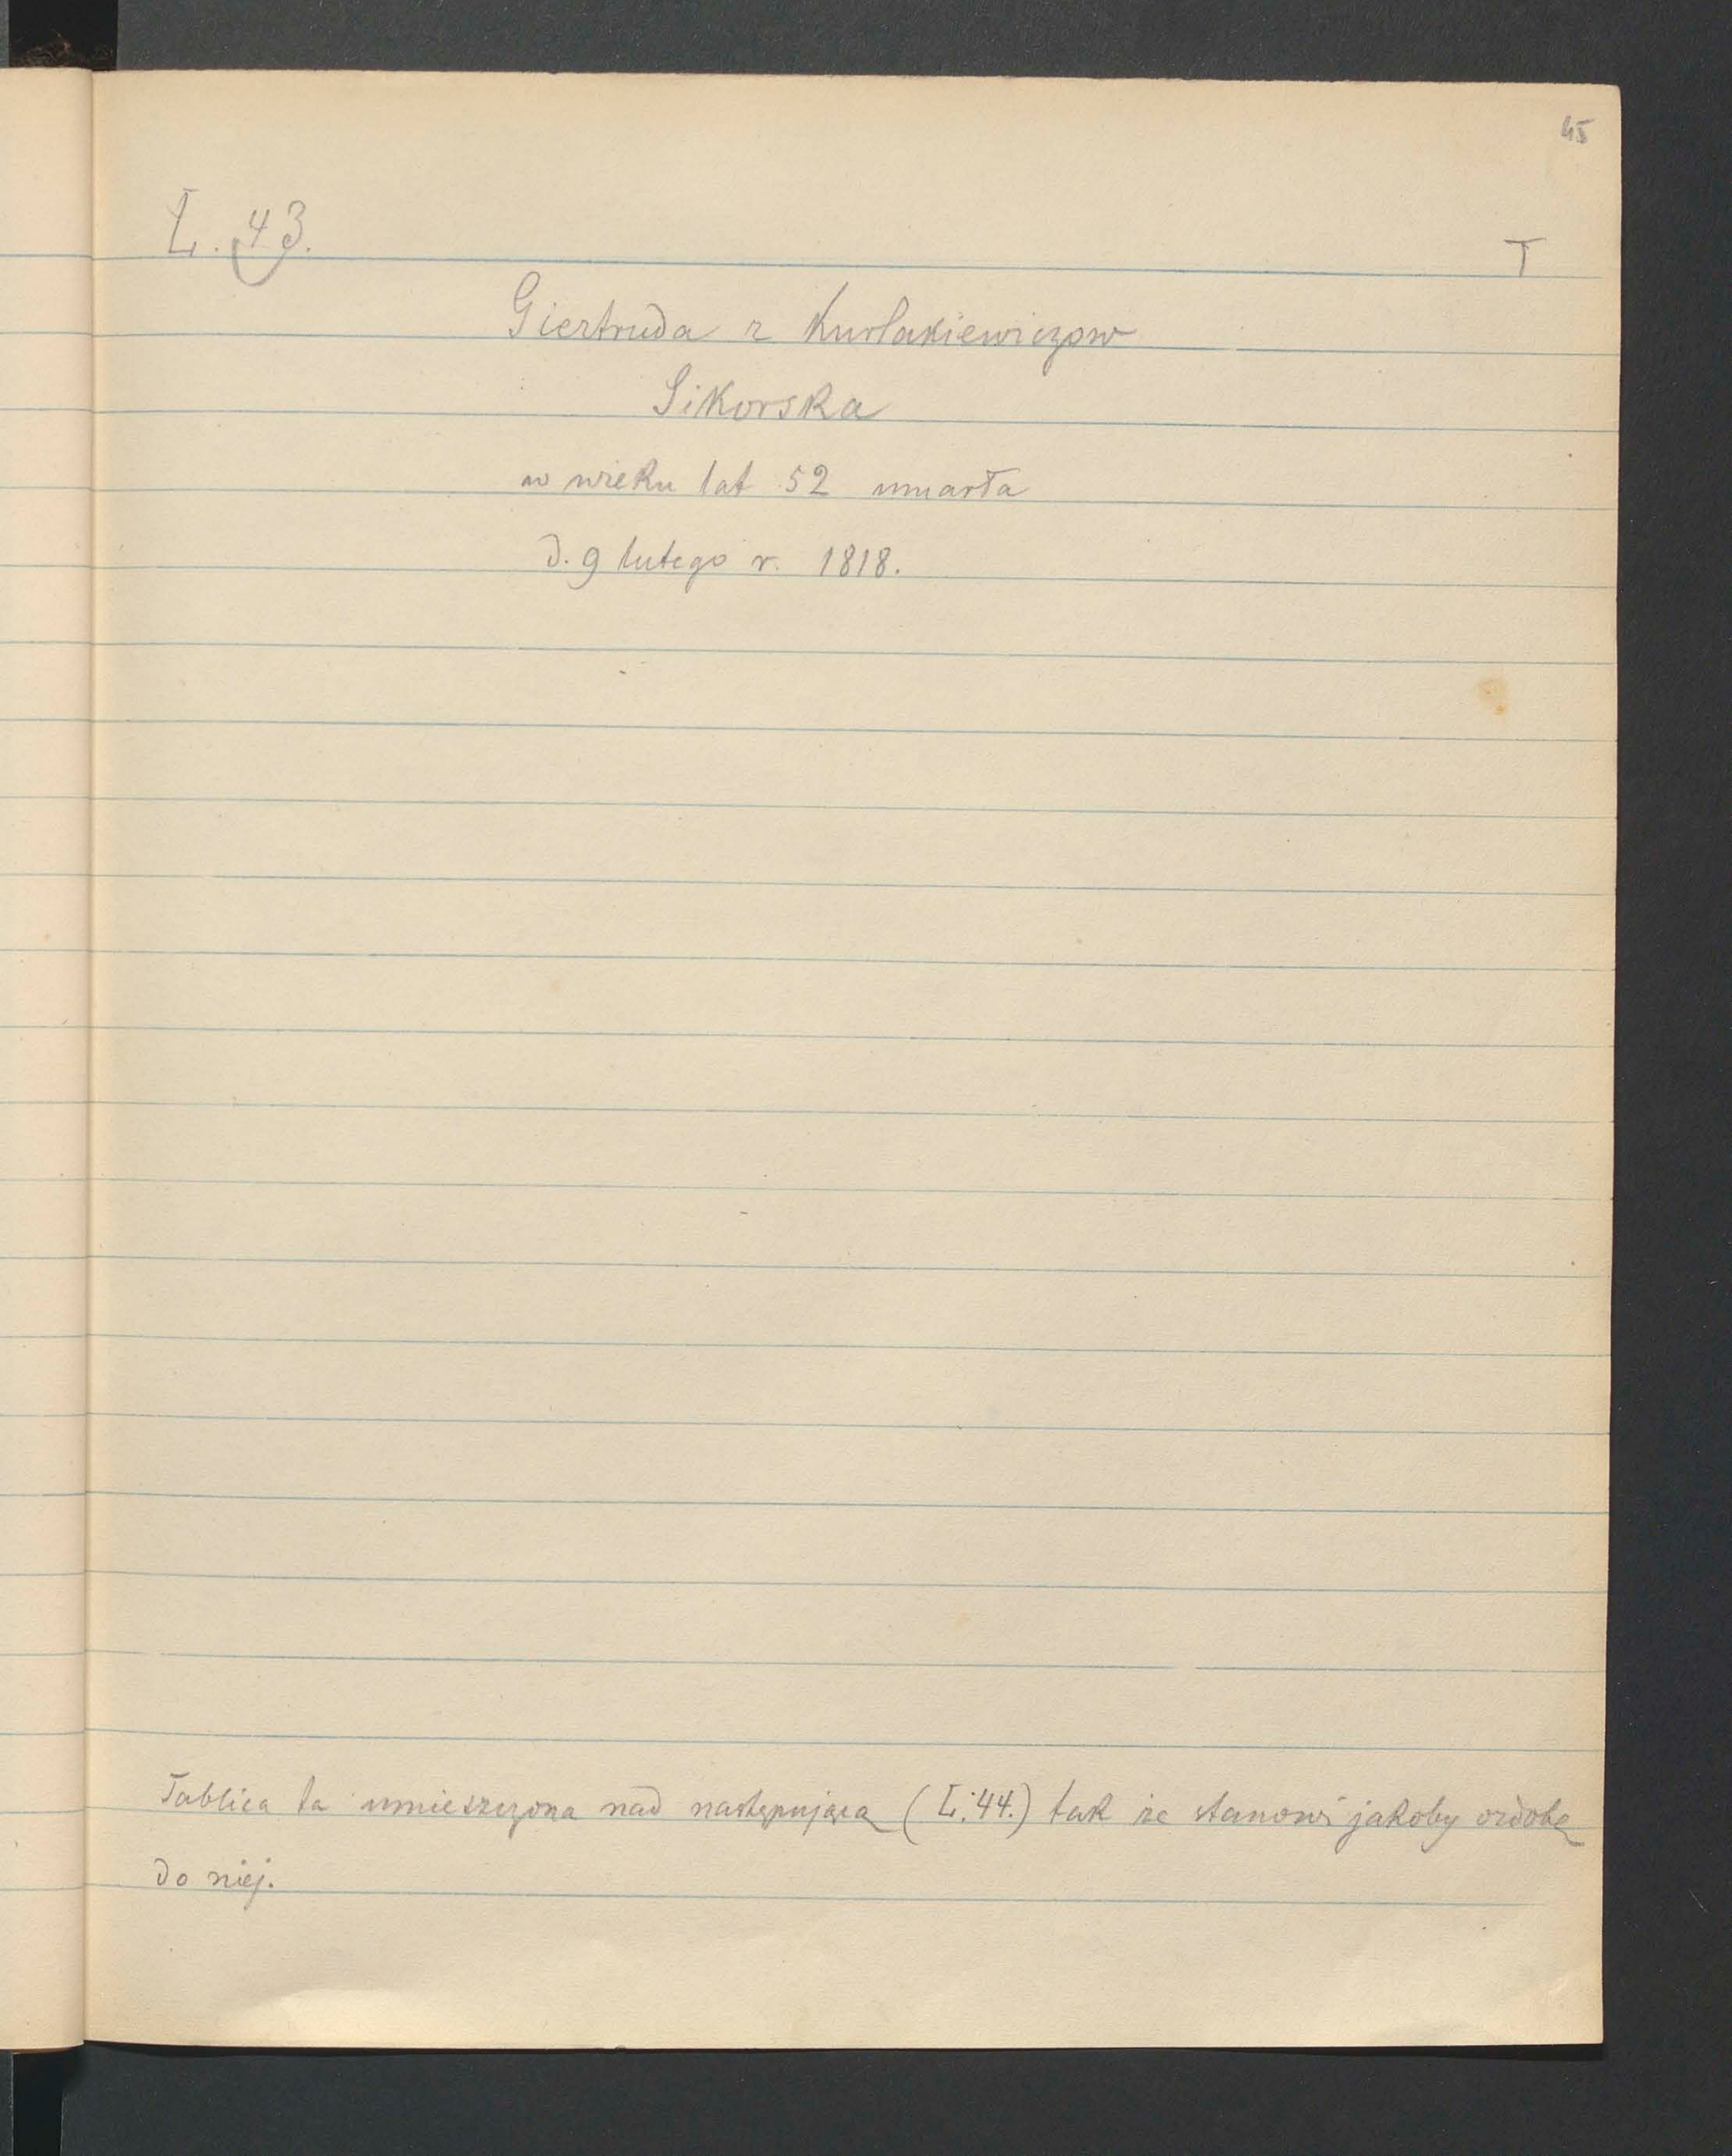 45
L. 43.
T
Giertruda z Kurłakiewiczow
Sikorska
w wieku lat 52 umarła
d. 9 lutego r. 1818.
Tablica ta umieszczona nad następującą (L. 44.) tak że stanowi jakoby ozdobę
do niej.